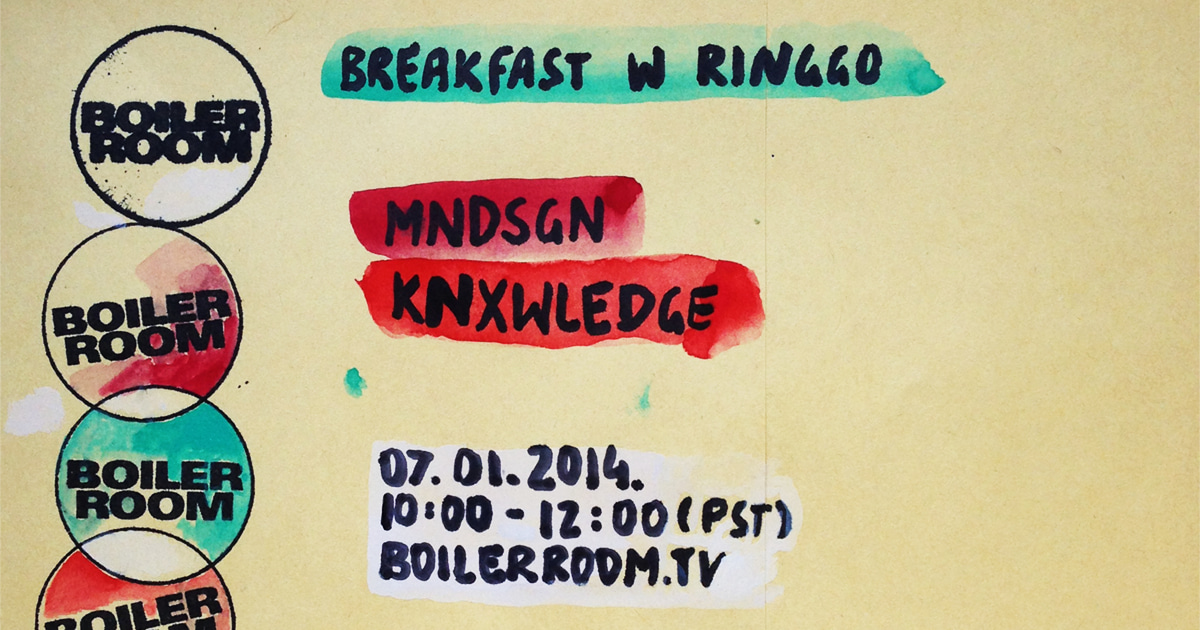 BOILER
ROOM
BREAKFAST W RINGGO
MNDSGN
KNXWLEDGE
BOILER
ROOM
BOILER
ROOM
07.01.2014.
10:00 - 12:00 (PST)
BOILERROOM.TV
BOILER